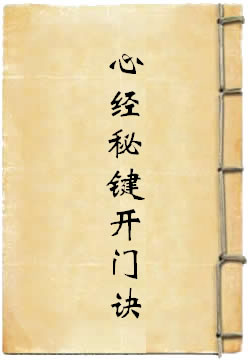 心经秘键开门诀